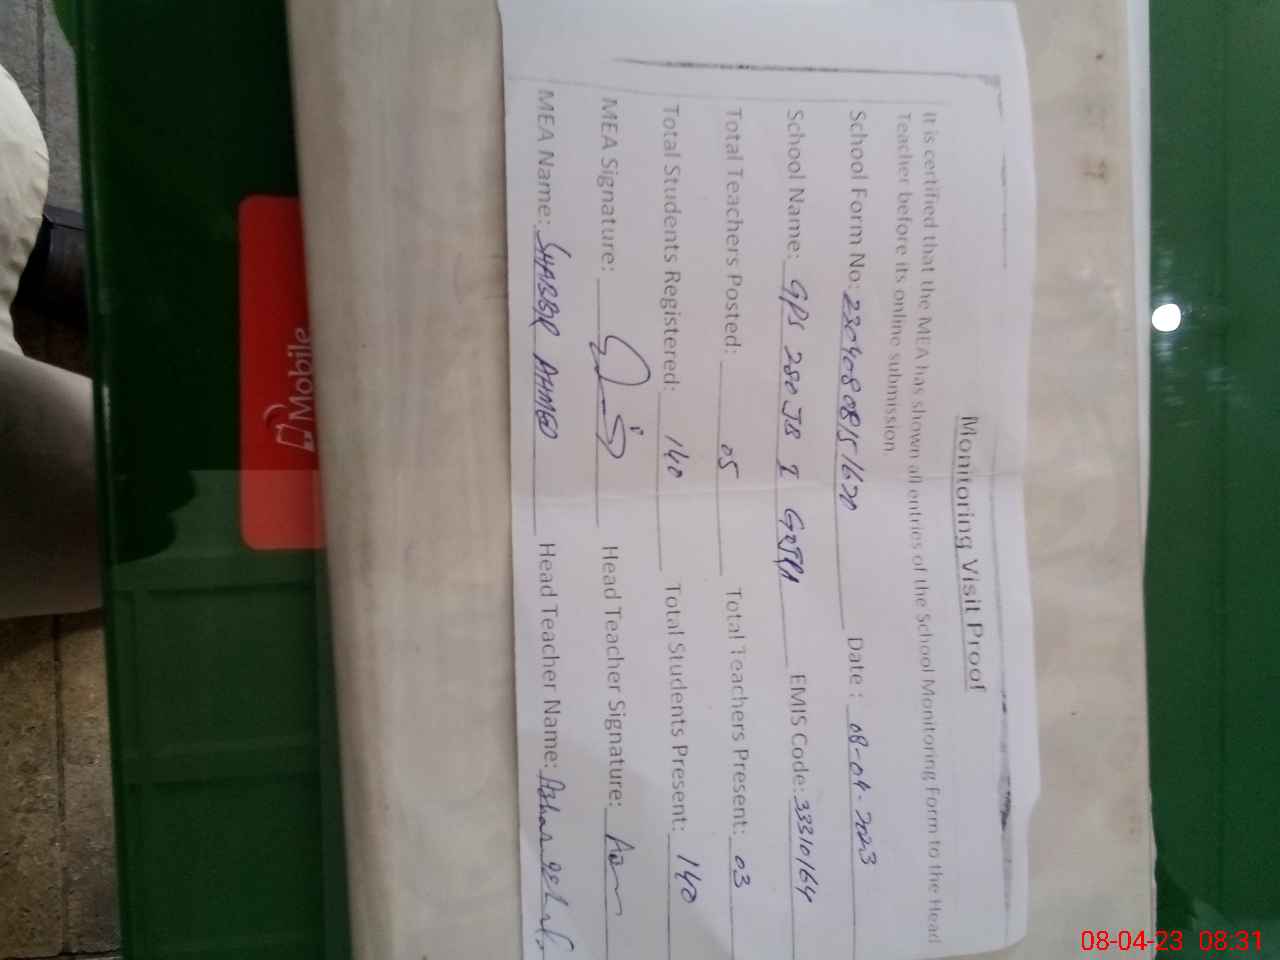 Monitoring Visit Proof
It is certified that the MEA has shown all entries of the School Monitoring Form to the Head
Teacher before its online submission.
School Form No: 23040808151620 Date: 08-04-2023
School Name: GPS 280 JB I GOJRA EMIS Code: 33310164
Total Teachers Posted: 05 Total Teachers Present: 03
Total Students Registered: 140 Total Students Present: 140
MEA Signature: Head Teacher Signature:
MEA Name: SHABBIR AHMED Head Teacher Name:
Mobile
08-04-23 08:31